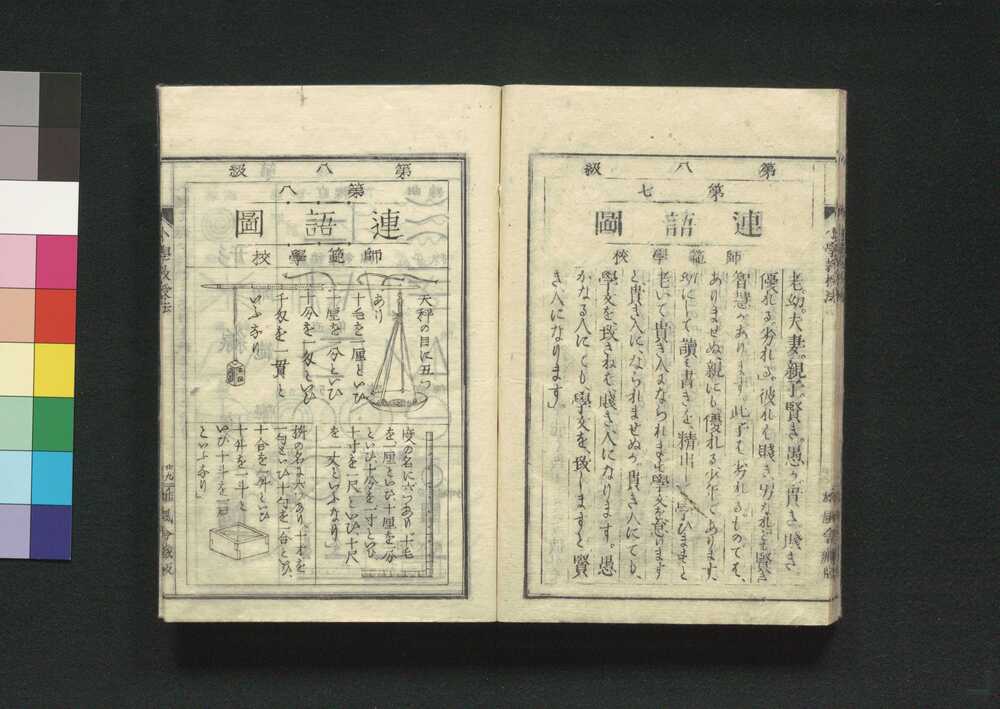 第八級
第七
連語圖
師範學校
老。幼。夫。妻。親。子。賢き。愚か。貴き。賤き。
優れる。劣れる。」彼れも賤き男なれども賢き
智慧があります。此子も劣れるものでも、
ありませぬ、親にも優れる少年であります、
幼にして、讀も書きを精出して學びませと
老いて貴き人はなられます學文を怠けます
と貴き人になられませぬが、貴き人にても、
學文を致さねバ賤き人になります。愚
かなる人にても、學文を、致しますと賢
き人になります」
第八級
第八
連語圖
師範學校
天秤の目に五つ
あり
十毛を一厘といひ
十厘を一分といひ
十分を一匁といひ
千匁を一貫と
いふなり
度の名に六つあり十毛
を一厘といひ十厘を一分
といひ十分を一寸といひ
十寸を一尺といひ十尺
を一丈といふなり」
桝の名は六つあり、十才を
一勺といひ十勺を一合といひ
十合を一升といひ
十升を一斗と
いひ十斗を一石
といふなり」
小學教授法
廿九